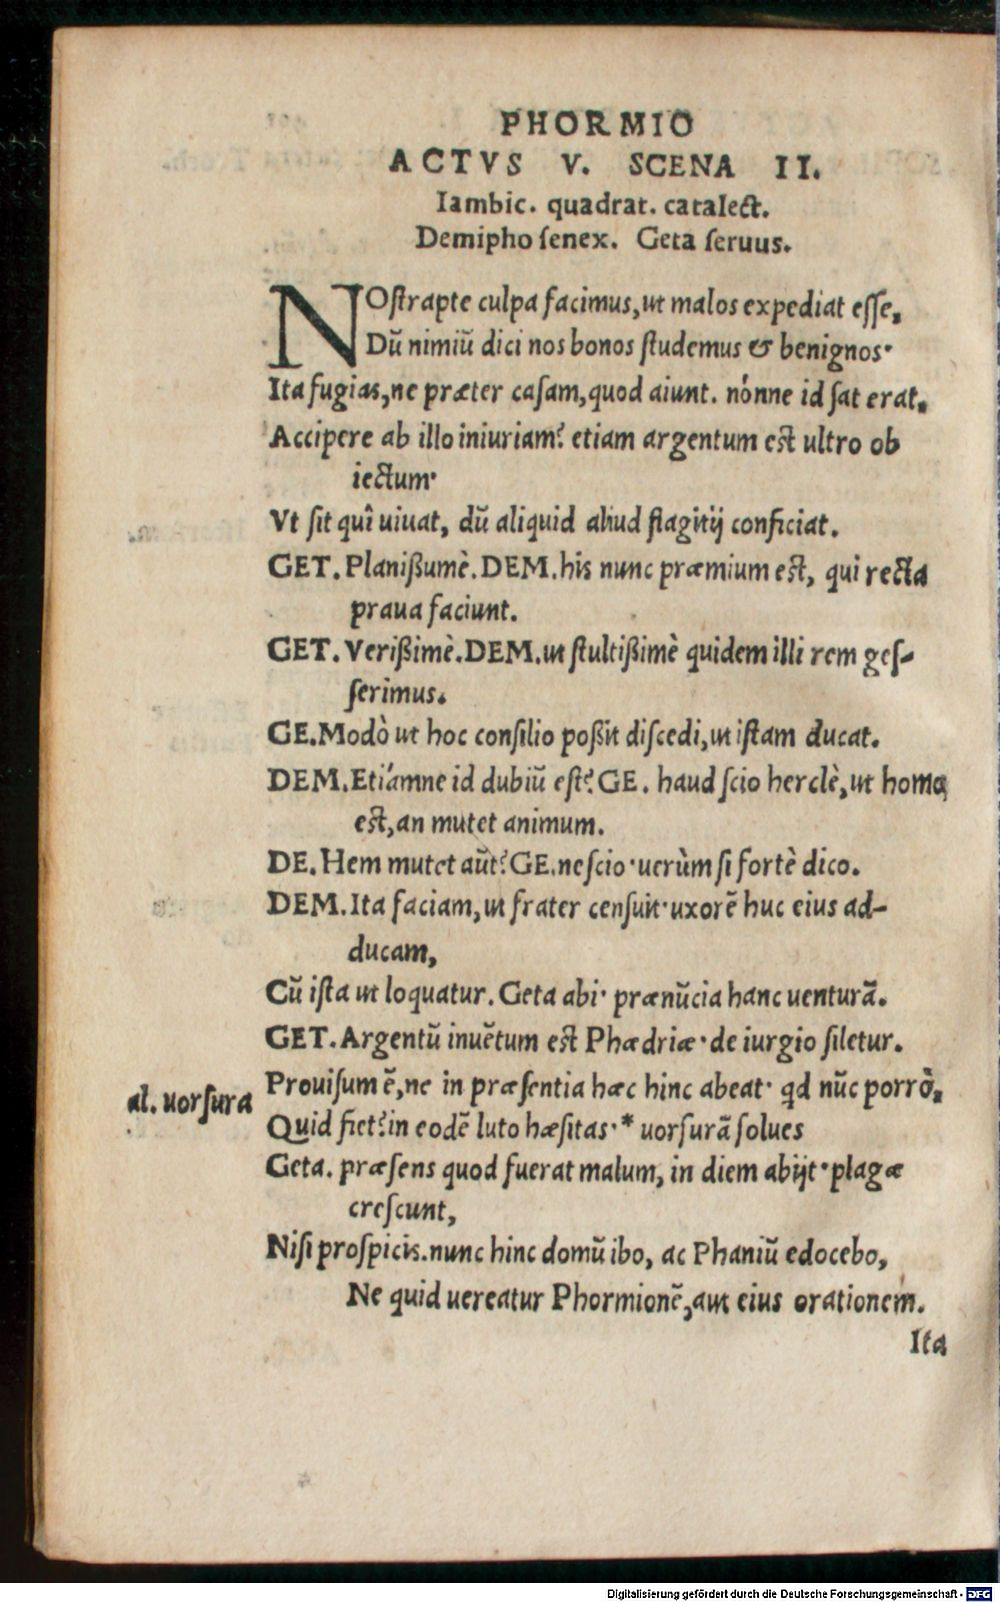 PHORMIO
ACTVS V. SCENA II.
Iambic. quadrat. catalect.
Demipho ſenex. Geta ſeruus.
NOſtrapte culpa facimus, ut malos expediat eſſe,
Dū nimiū dici nos bonos ſtudemus & benignos·
Ita fugias, ne præter caſam, quod aiunt. nónne id ſat erat,
Accipere ab illo iniuriam? etiam argentum eſt ultro ob
iectum·
Vt ſit quî uiuat, dū aliquid aliud flagitij conficiat.
GET. Planißumè. DEM. his nunc præmium eſt, qui recta
praua faciunt.
GET. Verißimè. DEM. ut ſtultißimè quidem illi rem geſ-
ſerimus.
GE. Modò ut hoc conſilio poßit diſcedi, ut iſtam ducat.
DEM. Etiámne id dubiū eſt? GE. haud ſcio herclè, ut homo
eſt, an mutet animum.
DE. Hem mutet aūt? GE. neſcio· uerùm ſi fortè dico.
DEM. Ita faciam, ut frater cenſuit· uxorē huc eius ad-
ducam,
Cū iſta ut loquatur. Geta abi· prænūcia hanc uenturā.
GET. Argentū inuētum eſt Phædriæ· de iurgio ſiletur.
Prouiſum ē, ne in præſentia hæc hinc abeat· qd nūc porrò,
al. uorſura
Quid fiet? in eodē luto hæſitas·* uorſurā ſolues
Geta. præſens quod fuerat malum, in diem abijt· plagæ
creſcunt,
Niſi proſpicis. nunc hinc domū ibo, ac Phaniū edocebo,
Ne quid uereatur Phormionē, aut eius orationem.
Ita
Digitalisierung gefördert durch die Deutsche Forschungsgemeinschaft - DFG